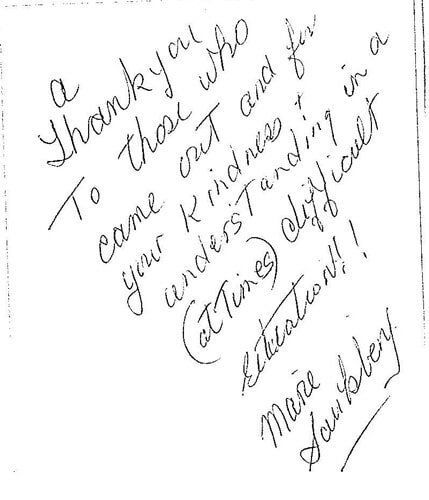 a
Thankyou
To those who
came out and for
your kindness +
understanding in a
(at Times) difficult
Marie